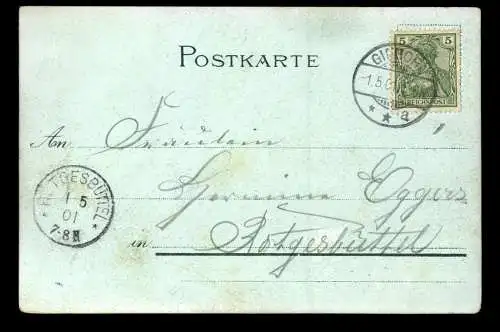 POSTKARTE
5 5
REICHSPOST
GIFHORN
1.5.0
* * a
An Fräulein
Hermine Eggers
in Rötgesbüttel
RÖTGESBÜTTEL
1 5
01
7-8N